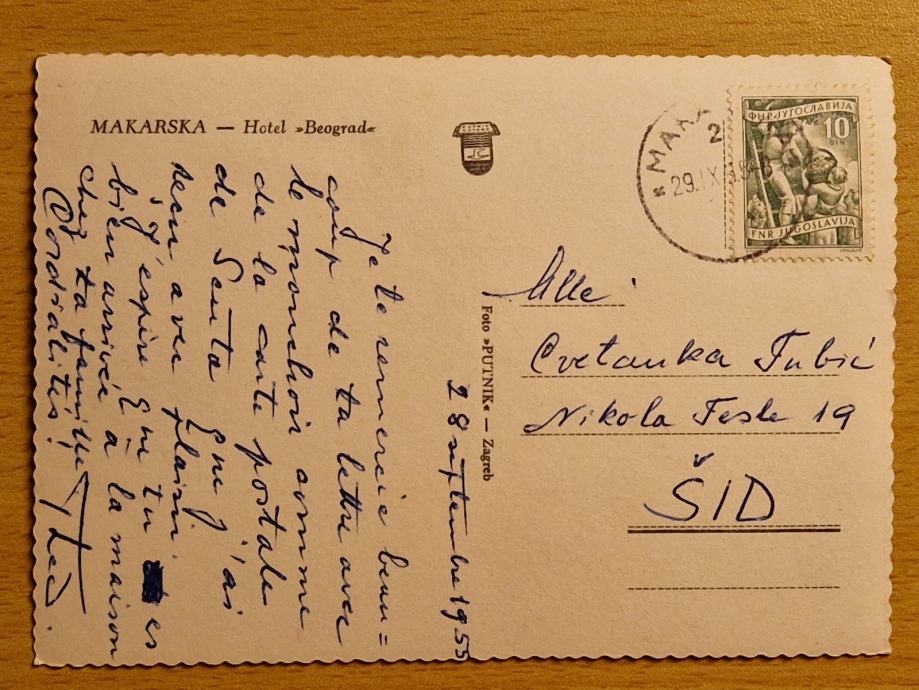 MAKARSKA — Hotel »Beograd«
28 septembre 1955
Je te remercie beau=
coup de ta lettre avec
le mouchoir comme
de la carte postale
de Senta que j'ai
reçu avec plaisir.
J'espère que tu es
bien arrivée à la maison
chez ta famille
Cordialités!
Foto »PUTNIK« — Zagreb
MAKA
2
29.IX
ФНР·ЈУГОСЛАВИЈА
10
DIN
FNR JUGOSLAVIJA
Mlle
Cvetanka Tubić
Nikola Tesle 19
ŠID